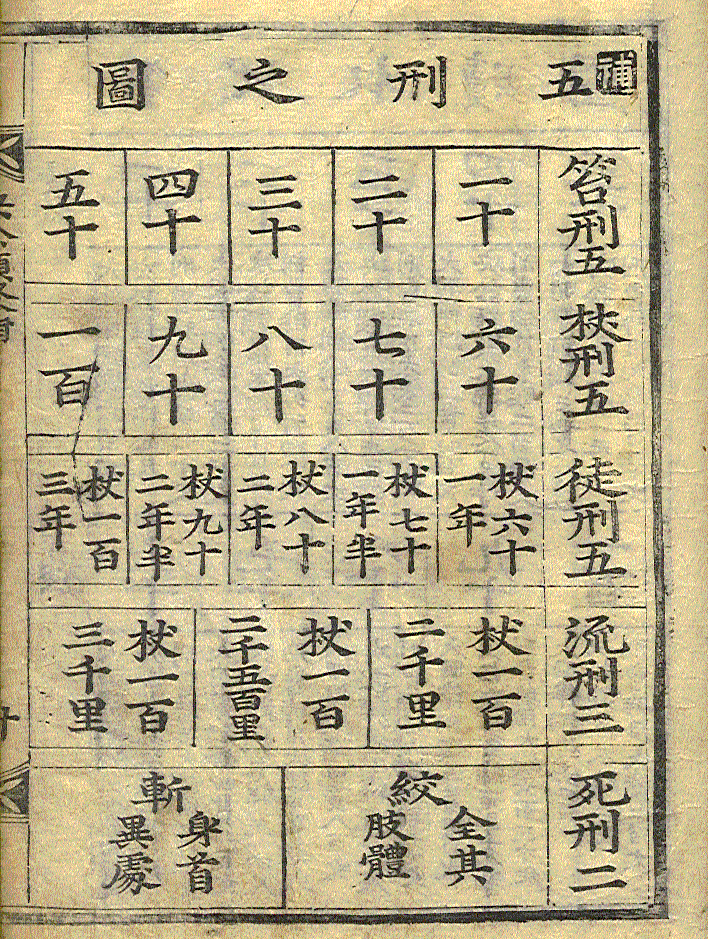 補五刑之圖
笞刑五
一十
二十
三十
四十
五十
杖刑五
六十
七十
八十
九十
一百
徒刑五
杖六十
一年
杖七十
一年半
杖八十
二年
杖九十
二年半
杖一百
三年
流刑三
杖一百
二千里
杖一百
二千五百里
杖一百
三千里
死刑二
絞
全其
肢體
斬
身首
異處